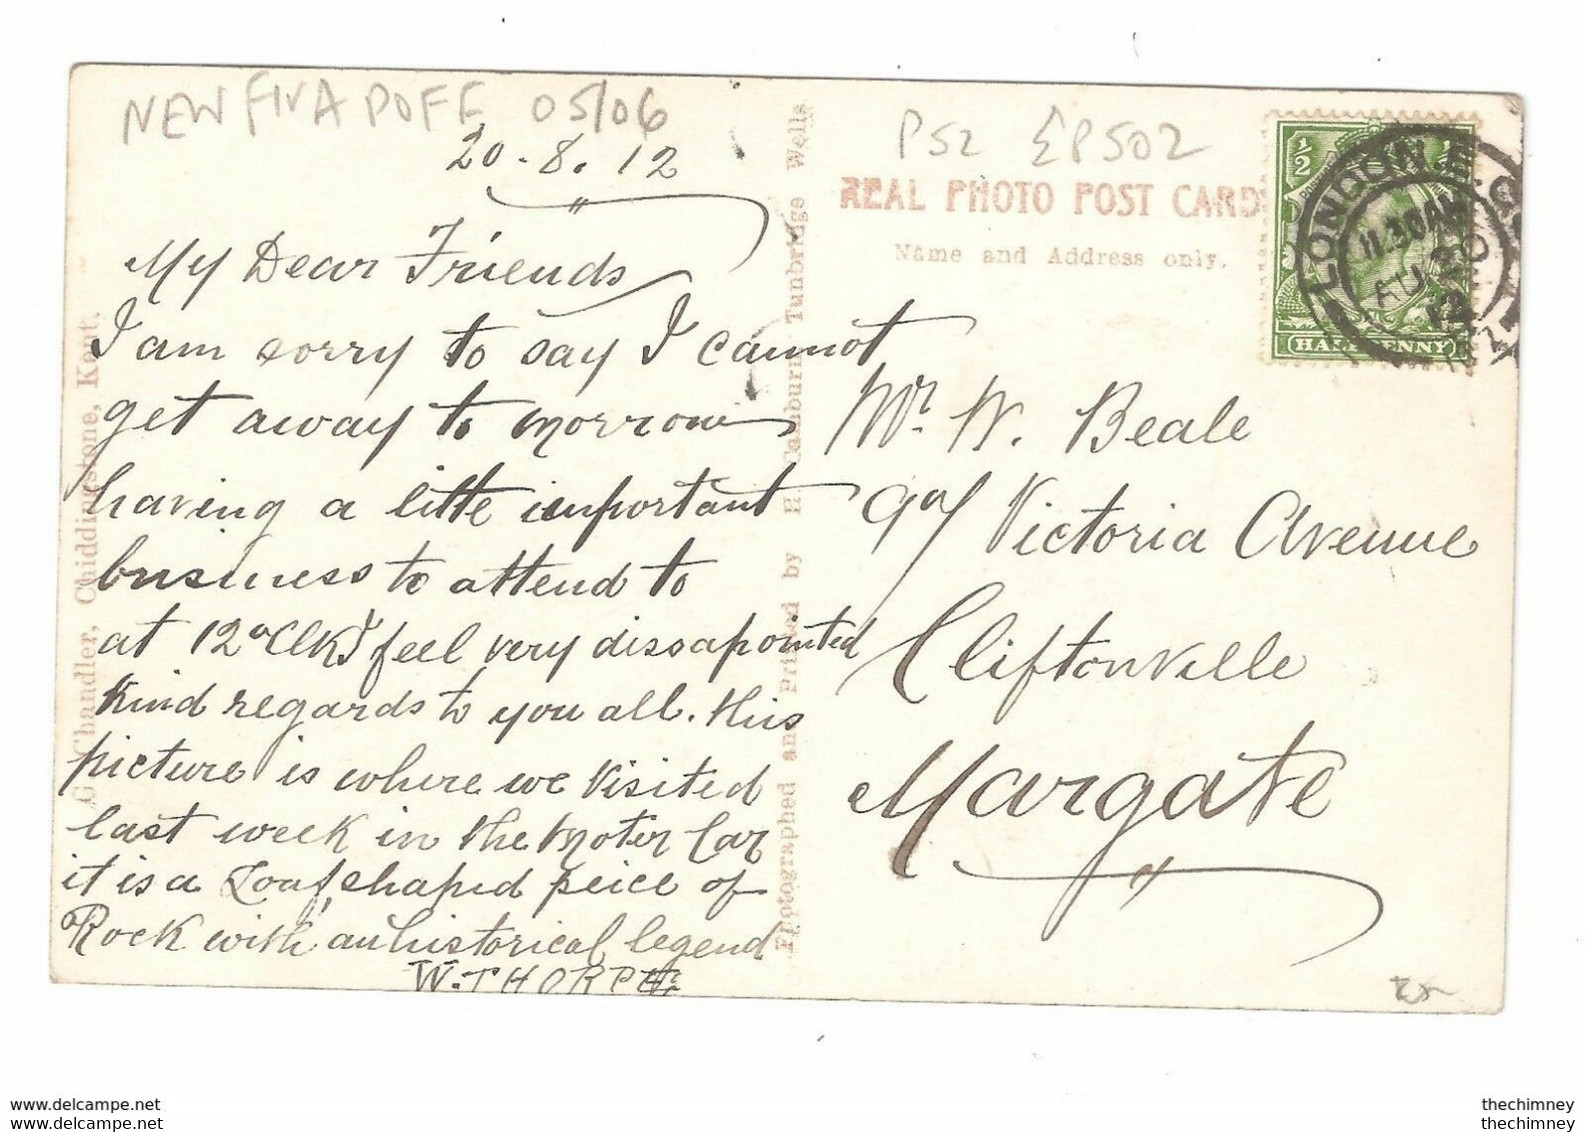 NEW FIVA POFF 05/06
20.8.12
My Dear Friends
I am sorry to say I cannot
get away to morrow
having a little important
business to attend to
at 12 oClk I feel very dissapointed
Kind regards to you all. this
picture is where we visited
last week in the Moter Car
it is a Loaf shaped peice of
Rock with an historical legend
W. THORPE
G. Chandler, Chiddingstone, Kent.
Photographed and Printed by H. Camburn Tunbridge Wells
PS2 £P502
REAL PHOTO POST CARD
Name and Address only.
1/2
HALFPENNY
LONDON. E.C.
11.30AM
AU 20
12
Mr. W. Beale
Victoria Avenue
Cliftonville
Margate
www.delcampe.net
www.delcampe.net
thechimney
thechimney